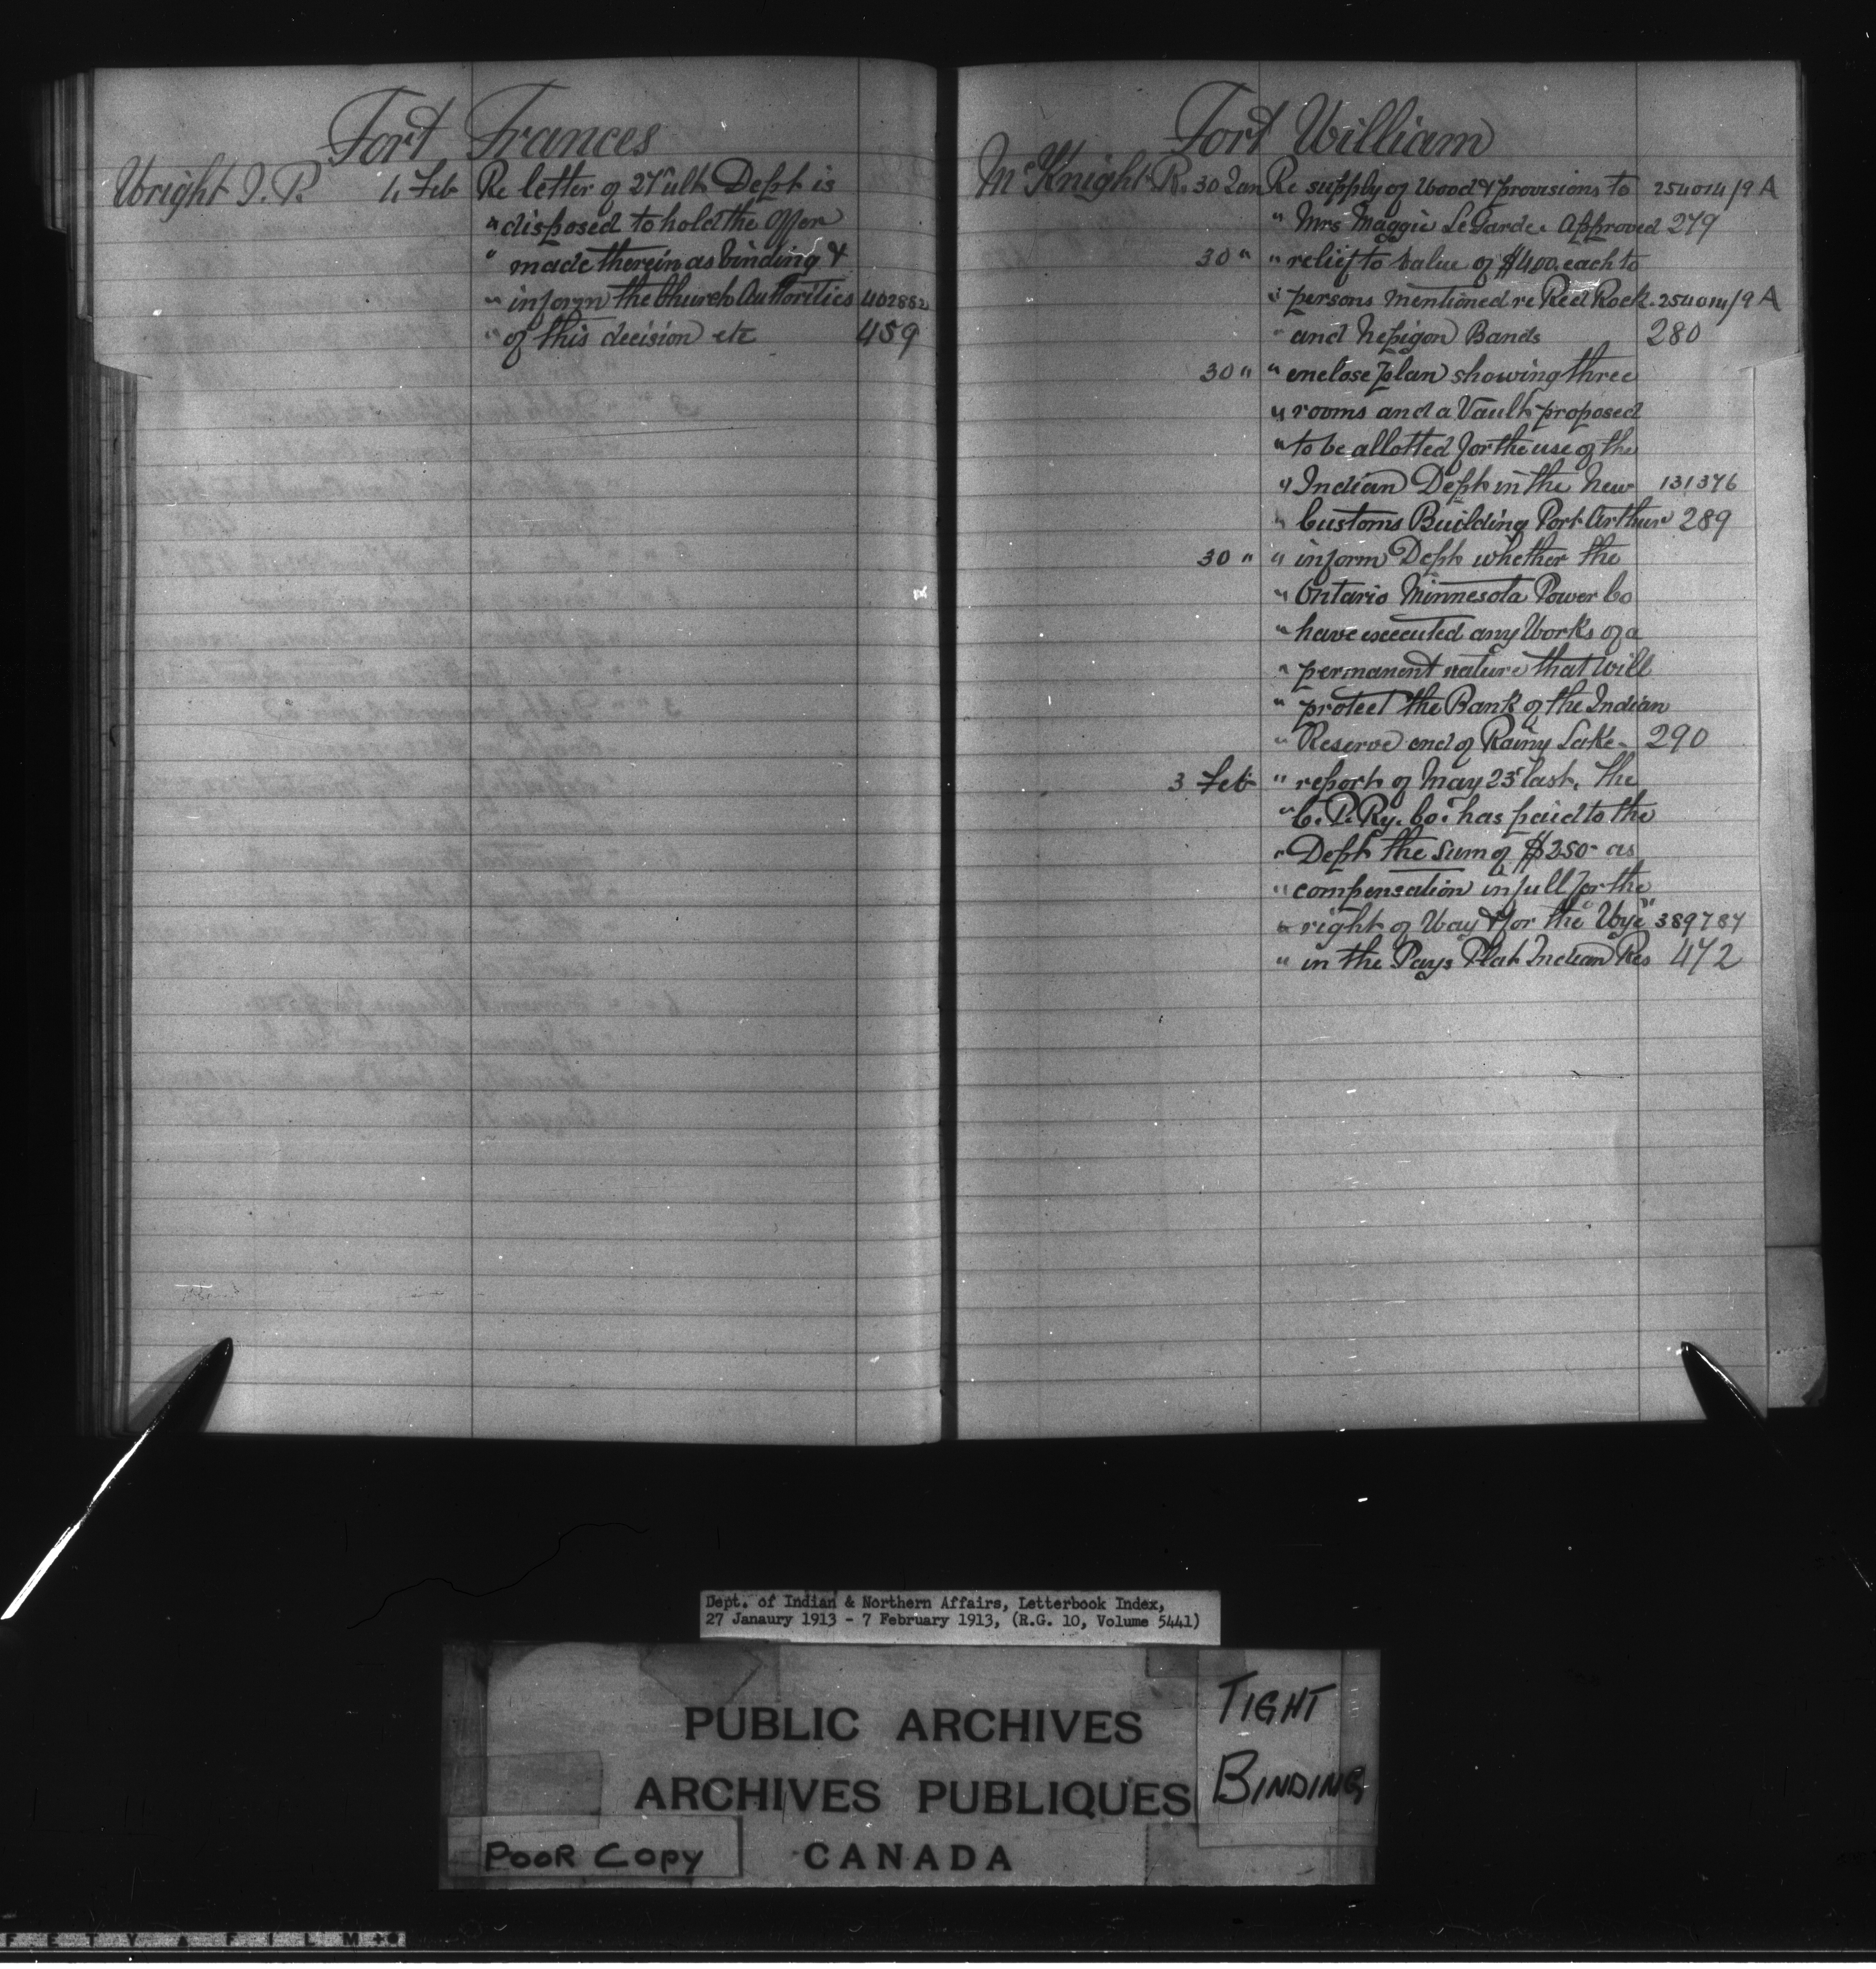 Fort Frances
Wright J. P. 4 Feb Re letter of 27 ult Dept is
" disposed to hold the offer
" made therein as binding &
" inform the Church Authorities 402882
" of this decision etc 459
Fort William
McKnight R. 30 Jan Re supply of wood & provisions to 254014/9 A
" Mrs Maggie LeGarde. Approved 279
30 " " relief to value of $4.00. each to
" persons mentioned re Red Rock. 254014/9 A
" and Nepigon Bands 280
30 " " enclose plan showing three
" rooms and a Vault proposed
" to be allotted for the use of the
" Indian Dept in the New 131376
" Customs Building Port Arthur 289
30 " " inform Dept whether the
" Ontario Minnesota Power Co
" have executed any Works of a
" permanent nature that will
" protect the Bank of the Indian
" Reserve end of Rainy Lake. 290
3 Feb " report of May 23 last. The
" C. P. Ry. Co. has paid to the
" Dept the sum of $250- as
" compensation in full for the
" right of Way & for the "Wye" 389787
" in the Pays Plat Indian Res 472
Dept. of Indian & Northern Affairs, Letterbook Index,
27 Janaury 1913 - 7 February 1913, (R.G. 10, Volume 5441)
PUBLIC ARCHIVES
ARCHIVES PUBLIQUES
CANADA
TIGHT
BINDING
POOR COPY
F E T Y A F I L M